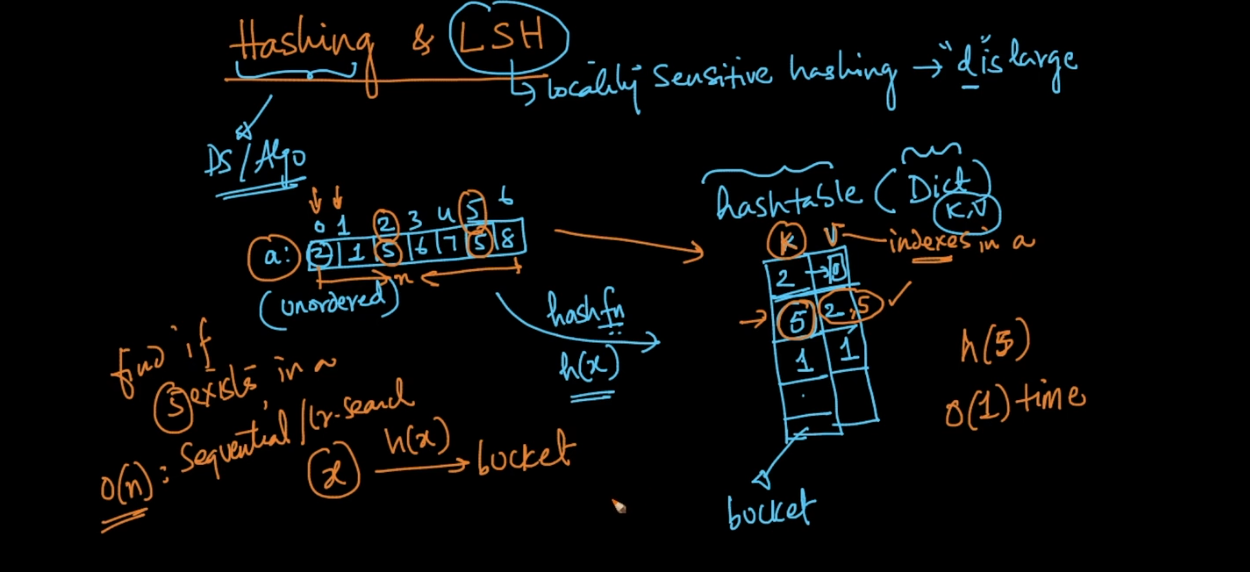 Hashing & LSH
locality Sensitive hashing → "d" is large
DS/Algo
0 1 2 3 4 5 6
a: 2 1 5 6 7 5 8
n
(unordered)
hashfn
h(x)
find if
5 exists in a
O(n): Sequential / lr-search
x h(x) → bucket
hashtable (Dict)
K,V
K V indexes in a
2 → 0
5 2,5
1 1
bucket
h(5)
O(1) time